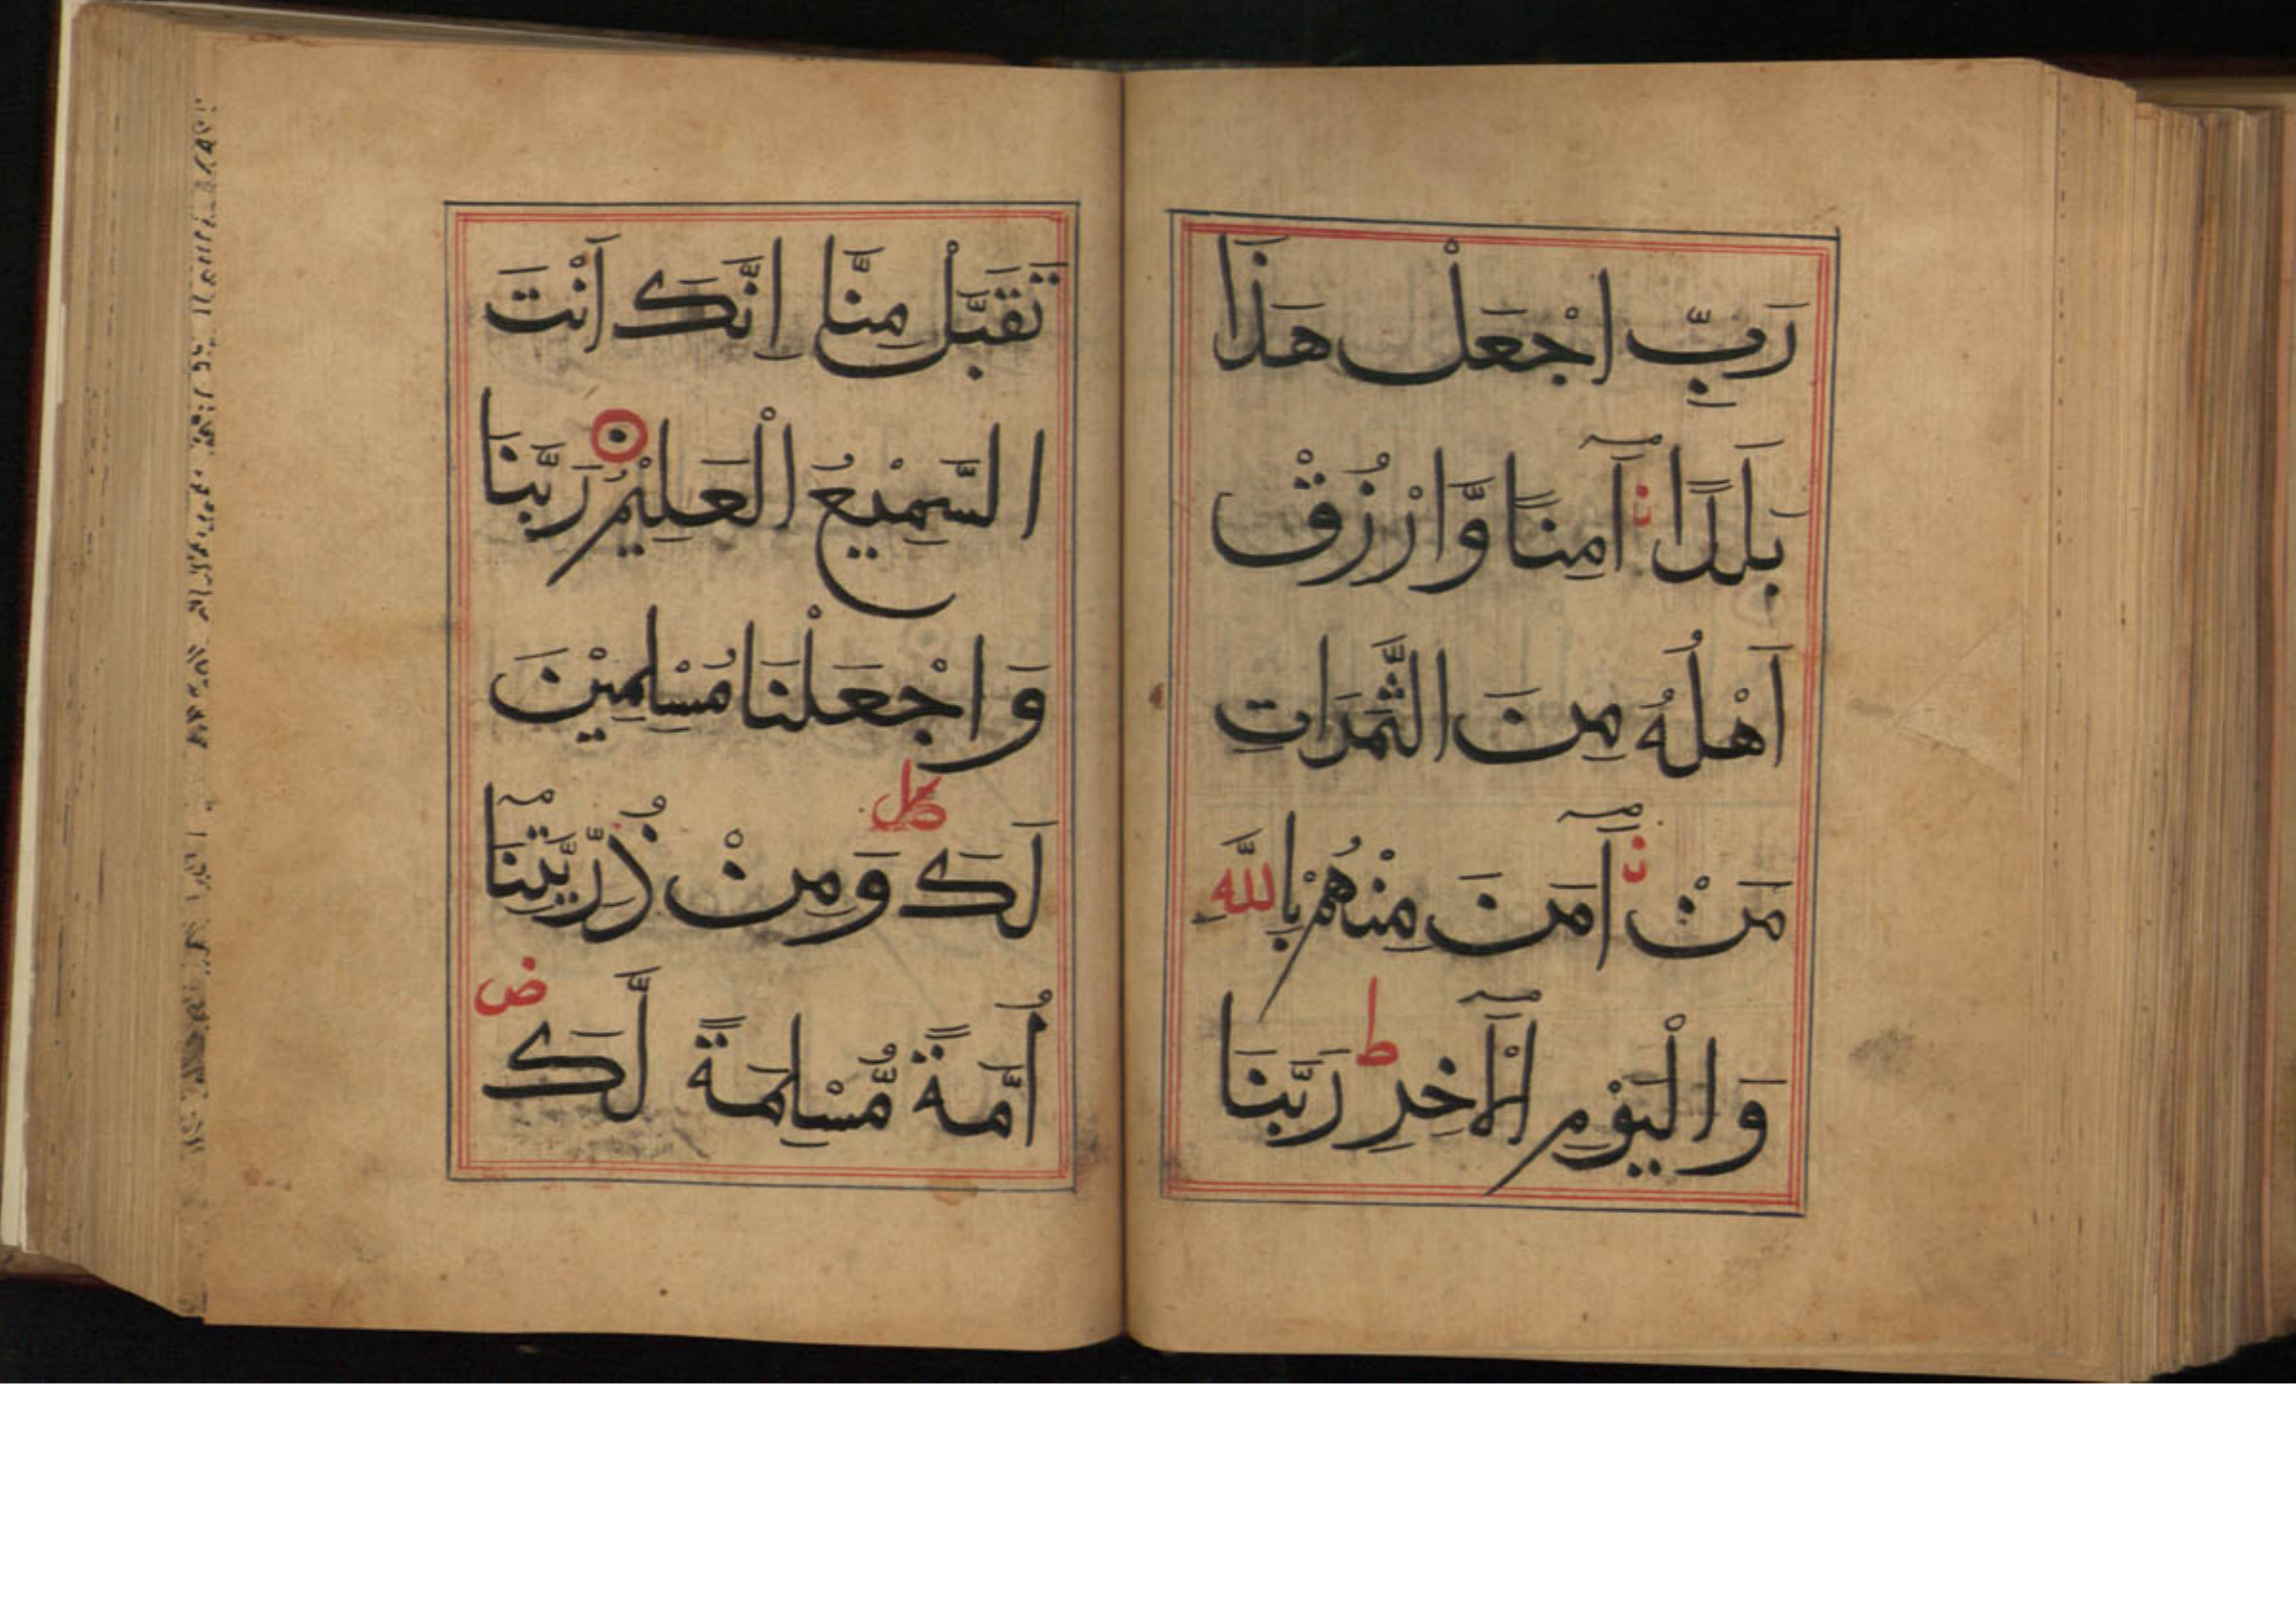 رَبِّ اجْعَلْ هَذَا
بَلَدًا آمِنًا وَّارْزُقْ
اَهْلَهُ مِنَ الثَّمَرَاتِ
مَنْ آمَنَ مِنْهُمْ بِاللَّهِ
وَالْيَوْمِ الْآخِرِ ط رَبَّنَا
تَقَبَّلْ مِنَّا اِنَّكَ اَنْتَ
السَّمِيْعُ الْعَلِيْمُ رَبَّنَا
وَاجْعَلْنَا مُسْلِمَيْنَ
لَكَ وَمِنْ ذُرِّيَّتِنَا
اُمَّةً مُّسْلِمَةً لَّكَ ض